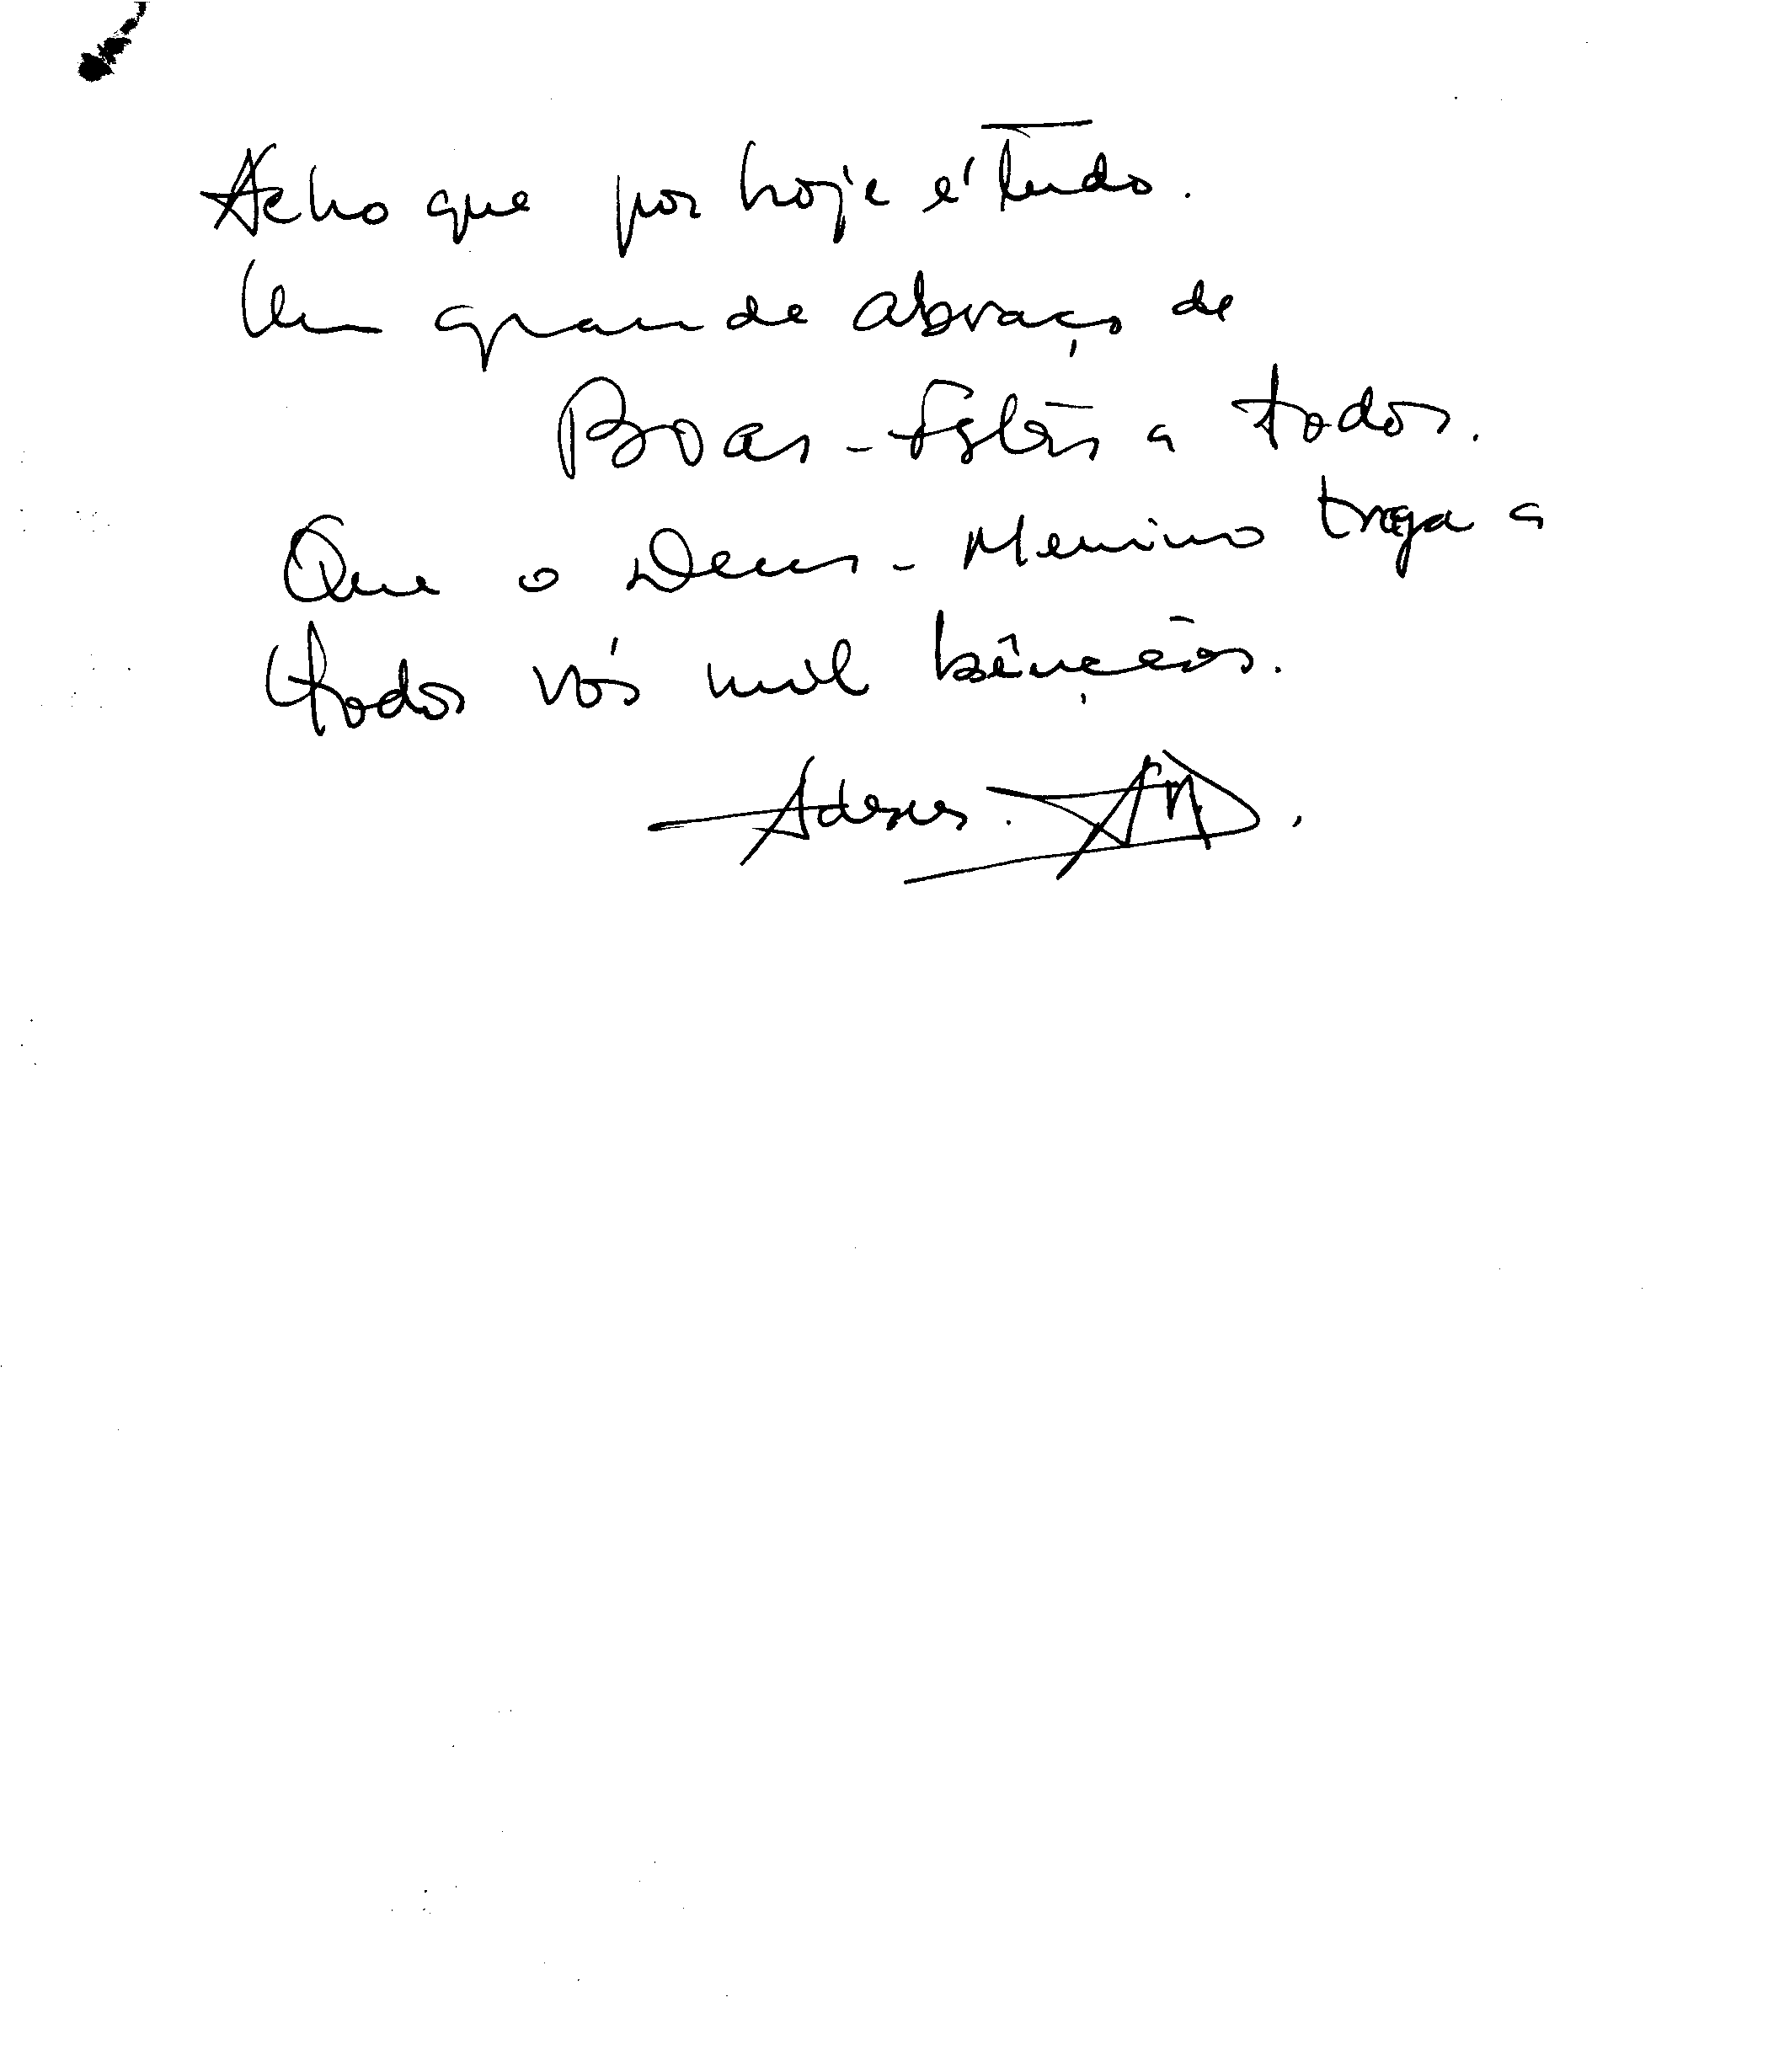 Acho que por hoje é tudo.
Um grande abraço de
Boas-Festas a todos.
Que o Deus-Menino traga a
todos vós mil bênçãos.
Adeus.